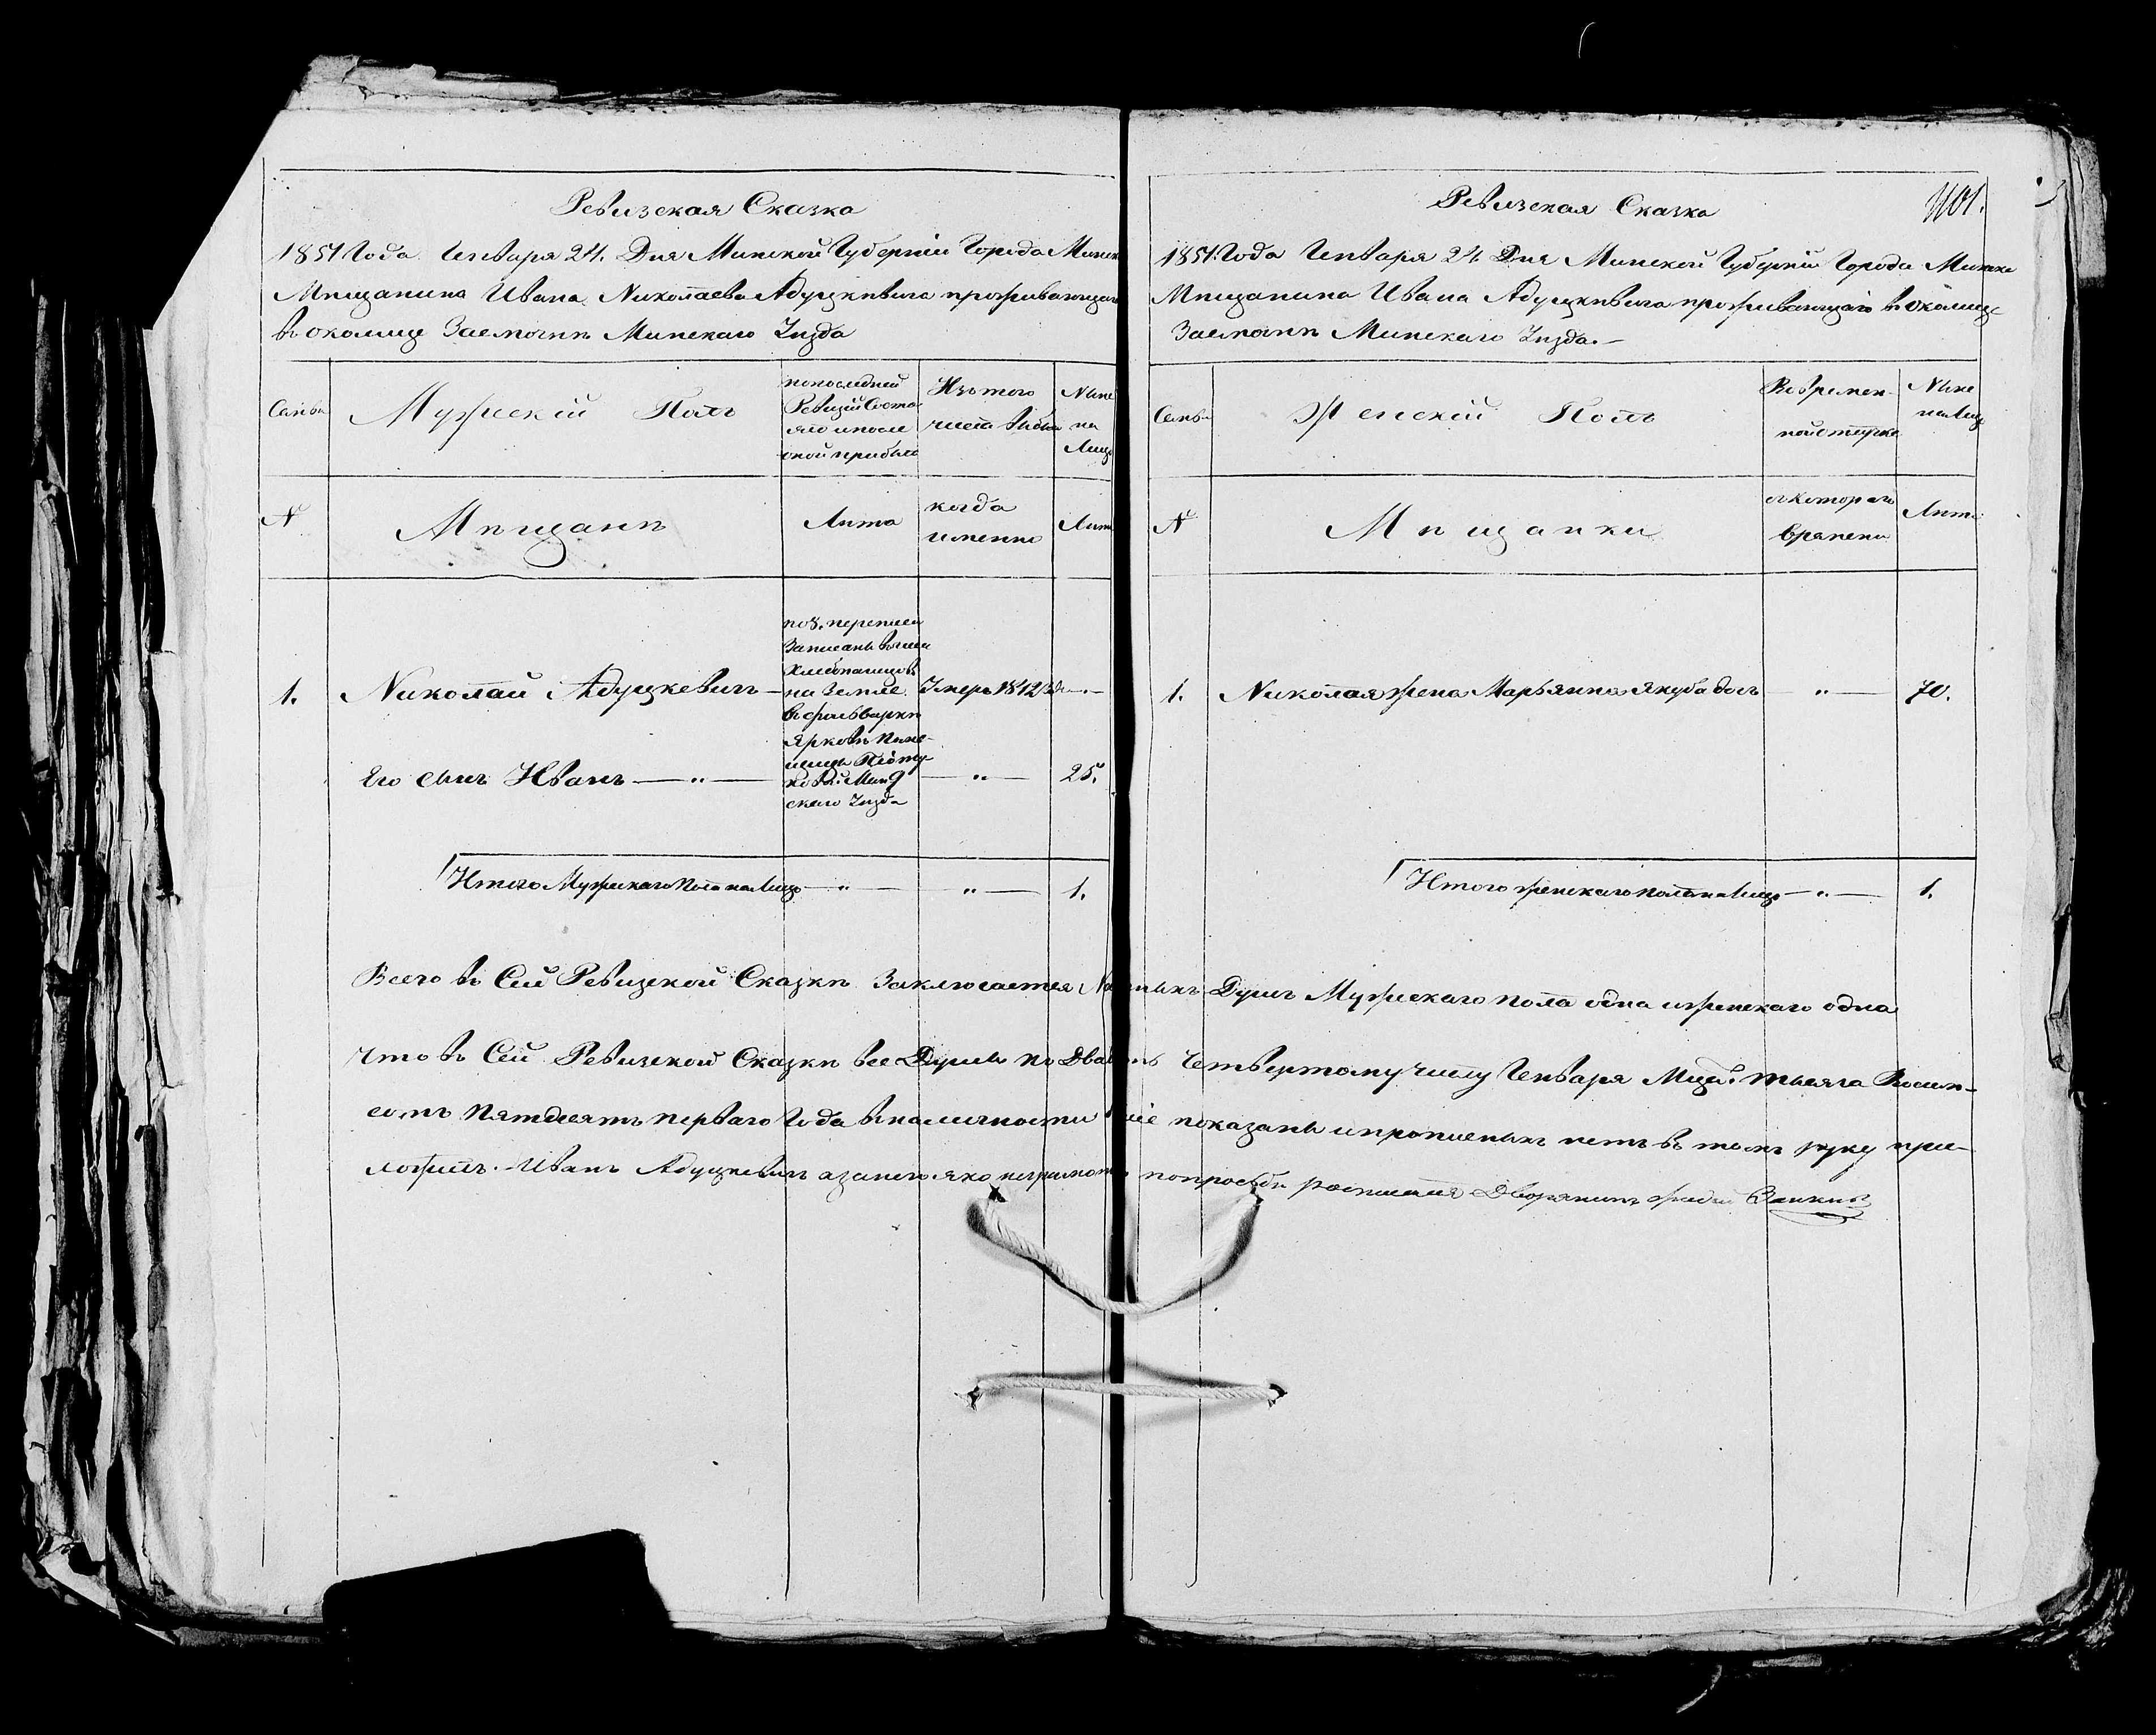 Ревизская Сказка
1851 Года Генваря 24. Дня Минской Губерніи Города Минск
Мѣщанина Ивана Николаева Адуцкѣвича проживающаго
въ околице Заемочнѣ Минскаго Уѣзда
Семьи
Мужескій Полъ
попоследней Ревизіи Состояло ипосле оной прибыло
Изъ того числа выбыло
Ныне на Лицо
№
Мѣщанѣ
Лѣта
когда именно
Лѣта
1.
Николай Адуцкевичъ
поз. переписи
Записанъ вчисле
Хлебопашцовъ
на Земле
вфольварки
Ярковъ
скаго Уѣзда
Умеръ 1812
Его сынъ Иванъ — " —
9
— " —
25.
Итого Мужскаго Пола на Лицо — " —
— " —
1.
Ревизская Сказка
1101.
1851 Года Генваря 24 Дня Минской Губерніи Города Минска
Мѣщанина Ивана Адуцкѣвича проживающаго въ околице
Заемочнѣ Минскаго Уѣзда. —
Семьи
Женскій Полъ
Вовременной отлучке
Ныне на Лицо
№
Мѣщанки
скотораго времени
Лѣта
1.
Николая жена Марьянна Якуба дочь
— " —
70.
Итого женскаго пола на Лицо — " —
1.
Всего въ Сей Ревизской Сказкѣ Заключается Душъ Мужескаго пола одна иженскаго одна
Что въ Сей Ревизской Сказкѣ все Души по Двадцать Четвертому числу Генваря Мца. тысяча Восем-
сотъ Пятдесятъ перваго Года вналичности показаны ипрописныхъ нетъ въ томъ руку при-
ложилъ. Иванъ Адуцкевичъ азанего яко неграмотн попросьбѣ росписался Дворянинъ